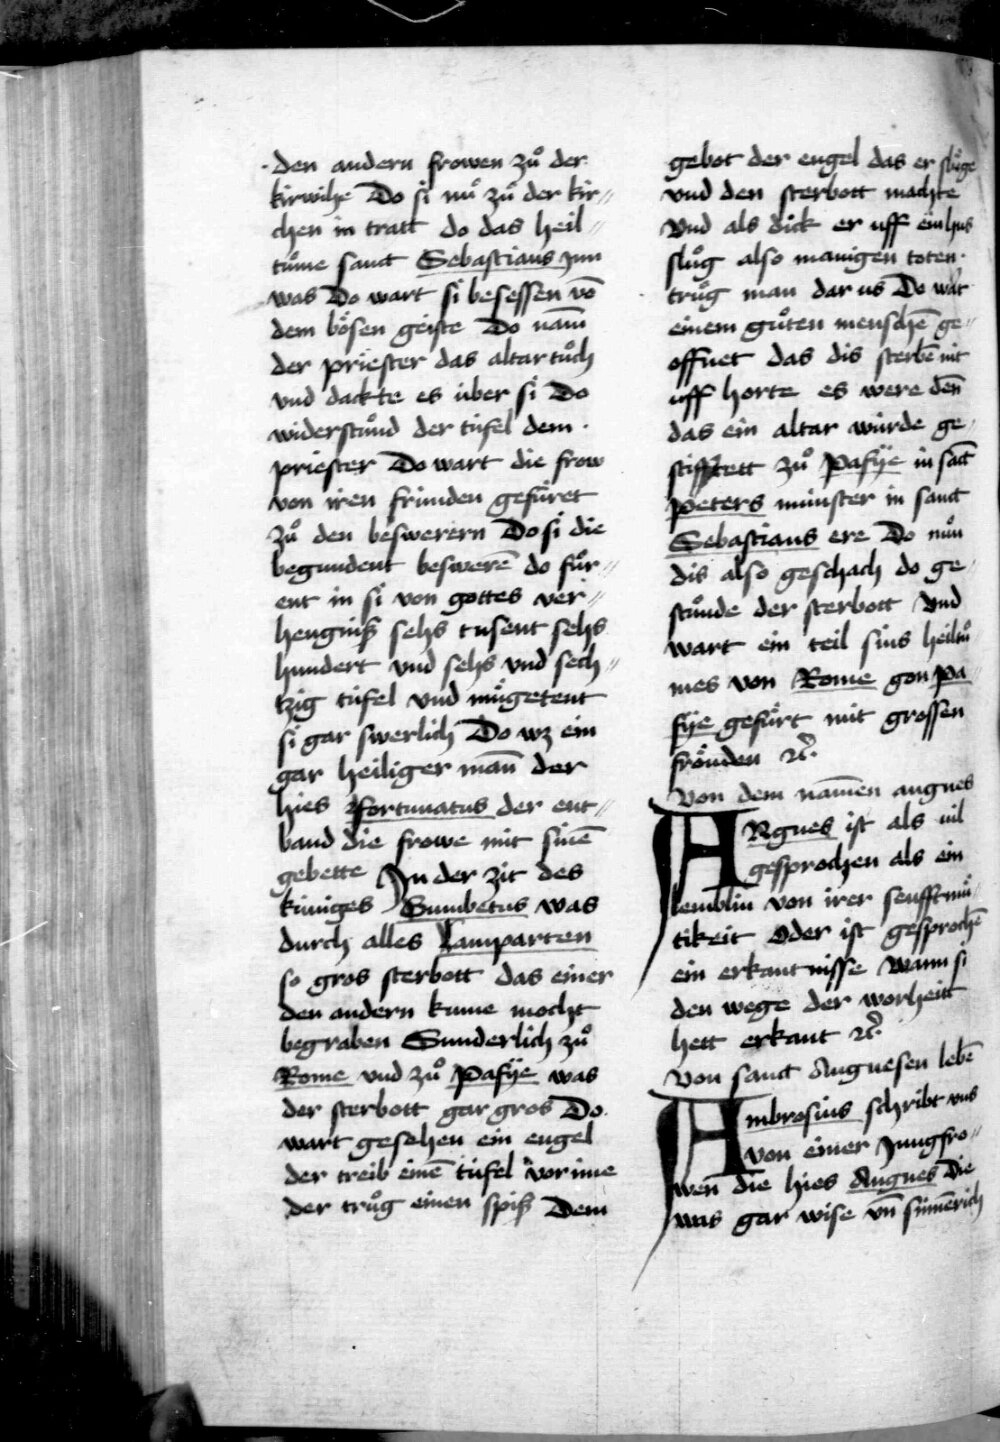 den andern frowen zuͦ der
kirwihe Do si nuͦ zuͦ der kir〃
chen in tratt do das heil〃
tuͦme sanct Sebastians inn
was Do wart si besessen vō
dem boͤsen geiste Do nam̄
der priester das altar tuͦch
vnd dackte es über si Do
widerstuͦnd der tüfel dem
priester Do wart die frow
von iren fründen gefuͤret
zuͦ den beswerern Do si die
begundent beswerē do fuͦr〃
ent in si von gottes ver〃
hengniß sehs tusent sehs
hundert vnd sehs vnd sech〃
tzig tüfel vnd muͤgetent
si gar swerlich Do wz ein
gar heiliger man̄ der
hies Fortunatus der ent〃
band die frowe mit sinē
gebette In der zit des
küniges Gumbetus was
durch alles Lamparten
so gros sterbott das einer
den andern kume mocht
begraben Sunderlich zuͦ
Rome vnd zuͦ Pafÿe was
der sterbott gar gros Do
wart gesehen ein engel
der treib einē tüfel vor ime
der truͦg einen spiß Dem
gebot der engel das er sluͤge
vnd den sterbott machte
Vnd als dick er uff ein hus
sluͦg also manigen toten
truͦg man dar us Do wart
einem guͦten menschē ge〃
offnet das dis sterbē nit
uff horte es were den̄
das ein altar würde ge〃
stifftett zuͦ Pafÿe in sāct
Peters münster in sanct
Sebastians ere Do nuͦn
dis also geschach do ge〃
stuͦnde der sterbott Vnd
wart ein teil sins heiltuͦ
mes von Rome gon Pa〃
fÿe gefuͤrt mit grossen
froͤuden ⁊c̄
Von dem nam̄en angnes
ANgnes ist als vil
gesprochen als ein
lemblin von irer senfftmuͤ〃
tikeit Oder ist gesprochē
ein erkantnisse Wann si
den wege der worheitt
hett erkant ⁊c̄
Von sanct Angnesen lebē
Ambrosius schribt vns
von einer Jungfro〃
wen̄ die hies Angnes Die
was gar wise vn̄ sinn̄erich